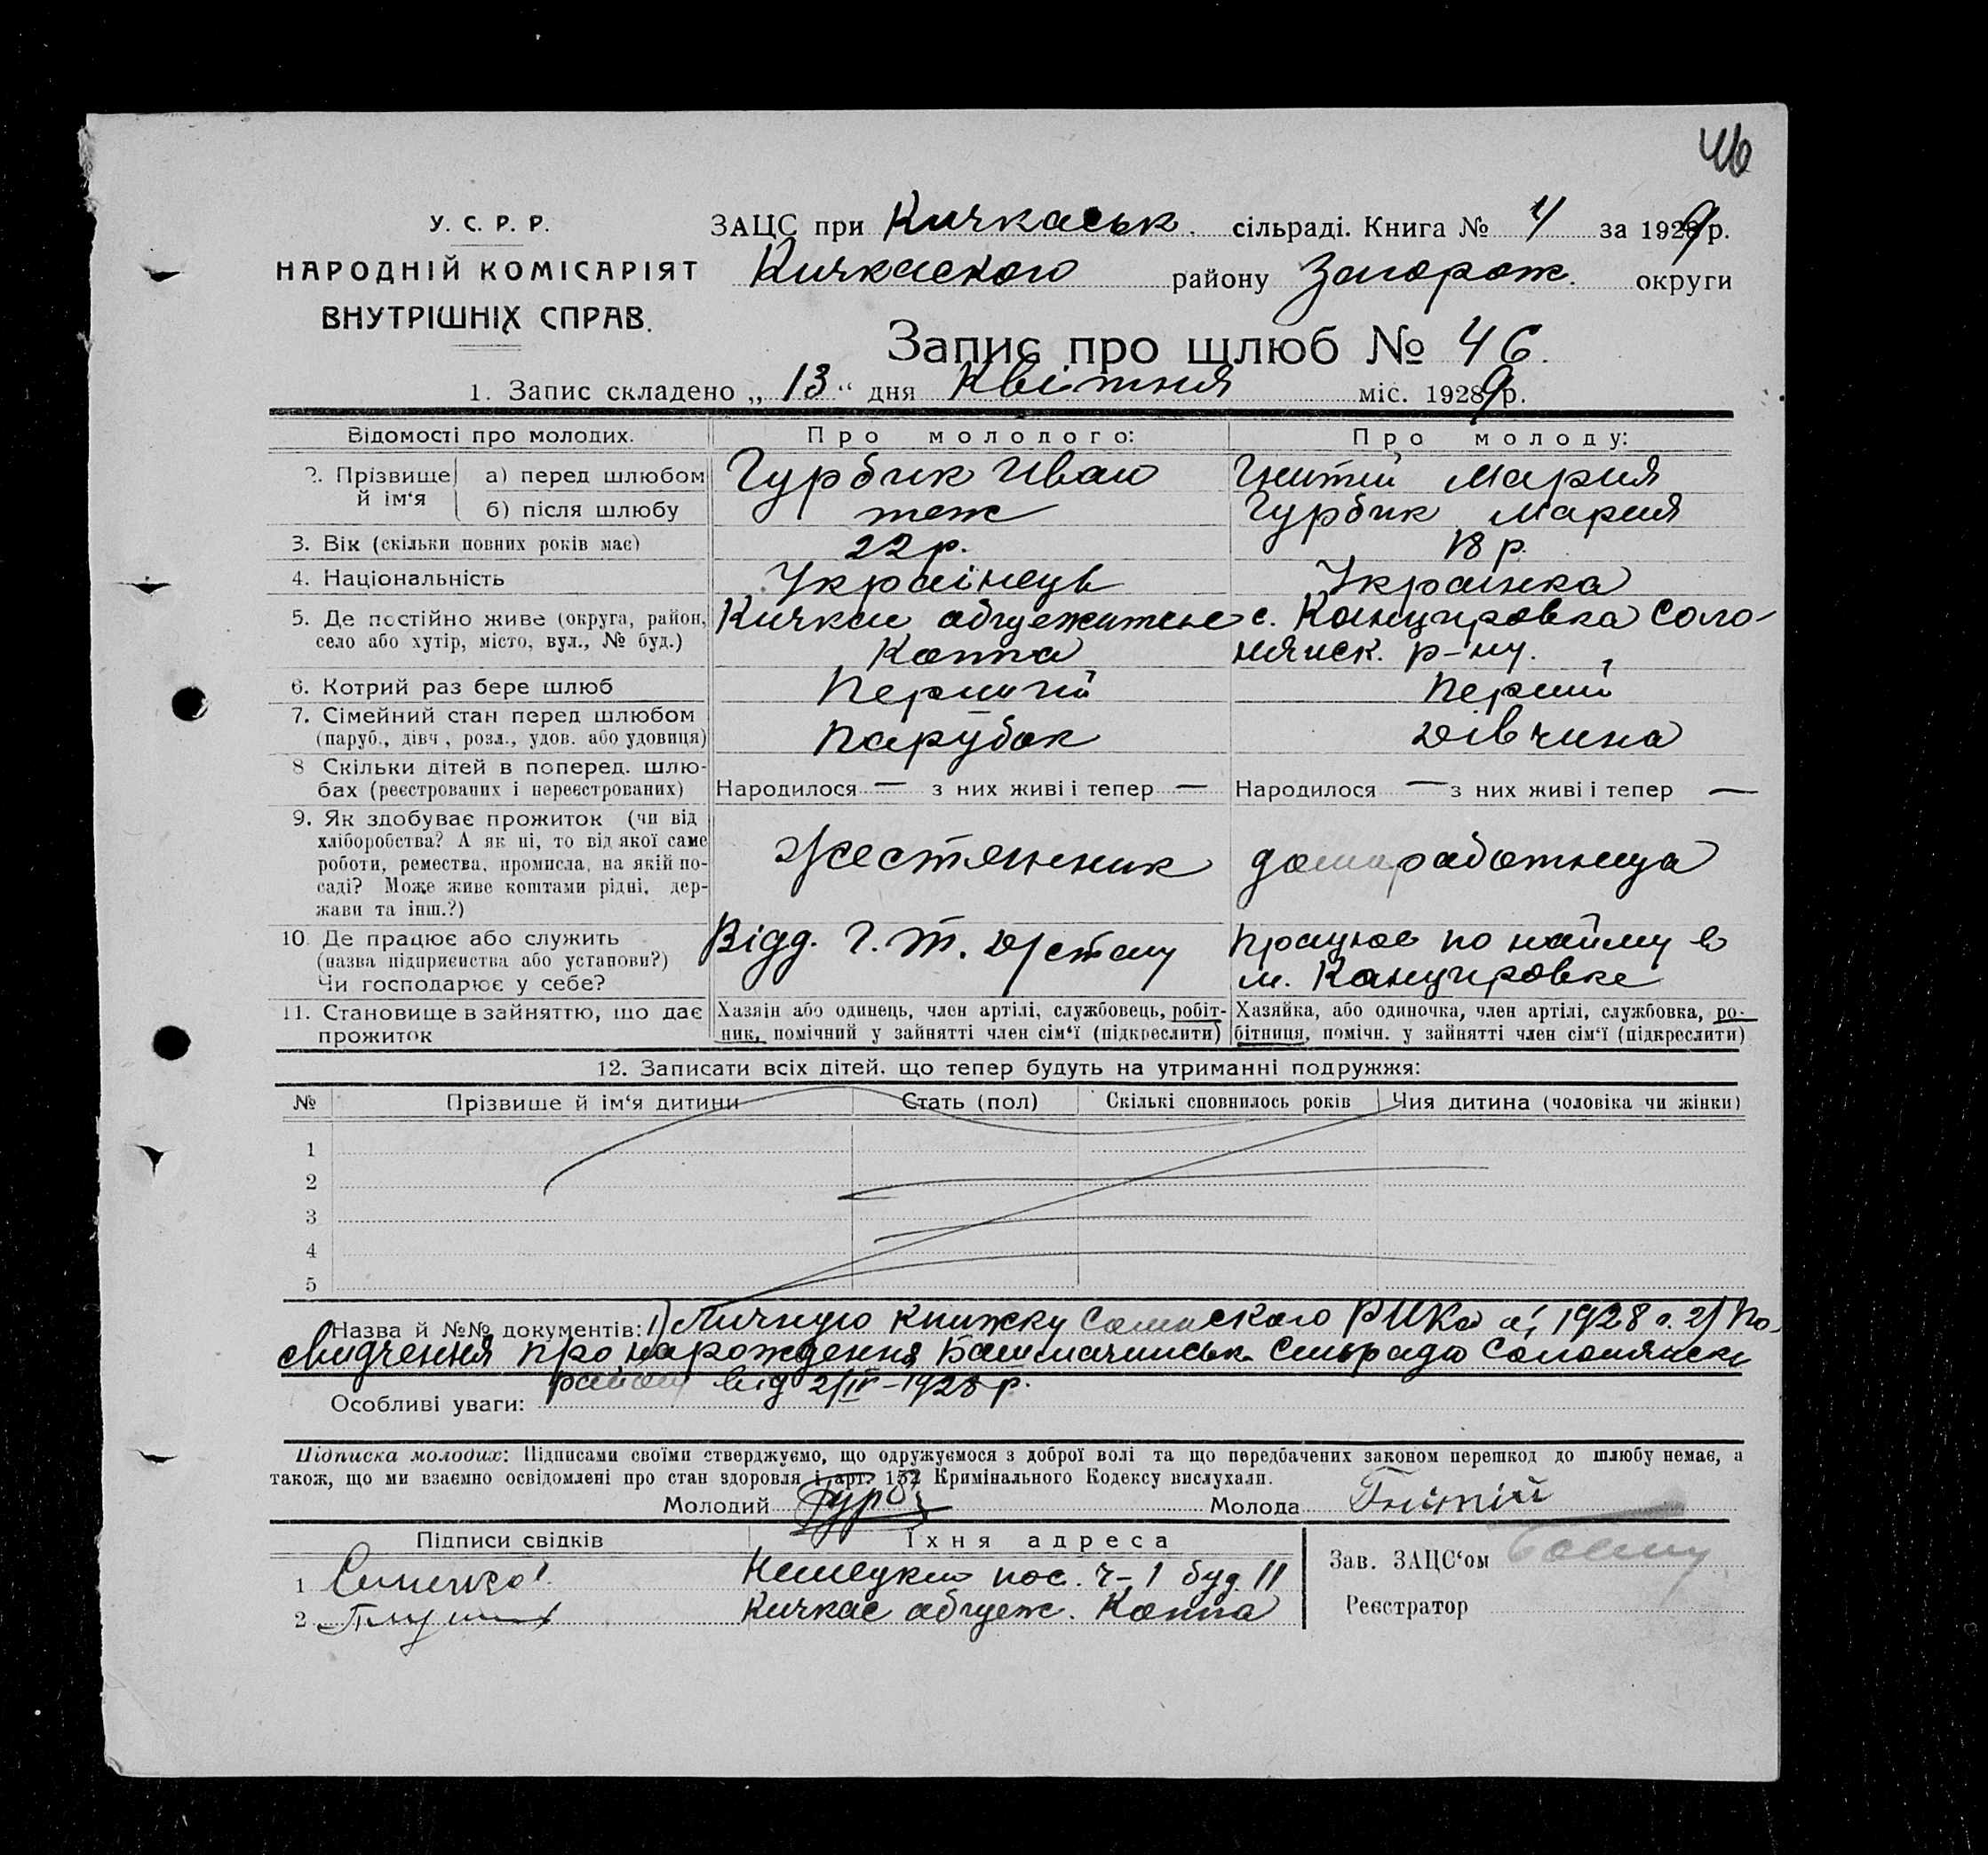 46
У. С. Р. Р.
НАРОДНІЙ КОМІСАРІЯТ
ВНУТРІШНІХ СПРАВ.
ЗАЦС при Кичкаськ. сільраді. Книга № 4 за 1929 р.
Кичкаського району Запорож. округи
Запис про шлюб № 46.
1. Запис складено „ 13 “ дня Квітня міс. 1929 р.
Відомості про молодих. Про молодого: Про молоду:
2. Прізвище й ім‘я а) перед шлюбом Гурбик Иван Гнитий Мария
б) після шлюбу теж Гурбик Мария
3. Вік (скільки повних років має) 22 р. 18 р.
4. Національність Українець Українка
5. Де постійно живе (округа, район, Кичкас общежитие с. Канцировка Соло-
село або хутір, місто, вул., № буд.) Коппа нянск. р-ну.
6. Котрий раз бере шлюб Перший Перший
7. Сімейний стан перед шлюбом
(паруб., дівч., розл., удов. або удовиця) Парубок Дівчина
8 Скільки дітей в поперед. шлю-
бах (реєстрованих і нереєстрованих) Народилося — з них живі і тепер — Народилося — з них живі і тепер —
9. Як здобуває прожиток (чи від
хліборобства? А як ні, то від якої саме
роботи, ремества, промисла, на якій по- Жестянник домработница
саді? Може живе коштами рідні, дер-
жави та інш.?)
10. Де працює або служить Відд. Г. Т. Працює по найму в
(назва підприємства або установи?) м. Канцировке
Чи господарює у себе?
11. Становище в зайняттю, що дає Хазяін або одинець, член артілі, службовець, робіт- Хазяйка, або одиночка, член артілі, службовка, ро-
прожиток ник, помічний у зайнятті член сім‘ї (підкреслити) бітниця, помічн. у зайнятті член сім‘ї (підкреслити)
12. Записати всіх дітей, що тепер будуть на утриманні подружжя:
№ Прізвище й ім‘я дитини Стать (пол) Скількі сповнилось років Чия дитина (чоловіка чи жінки)
1
2
3
4
5
Назва й №№ документів: 1) Личную книжку РИКа 1928 г. 2) По-
свидчення про народження Башмачинськ. Сільради Солонянск.
району від 2/IV-1928 р.
Особливі уваги:
Підписка молодих: Підписами своїми стверджуємо, що одружуємося з доброї волі та що передбачених законом перешкод до шлюбу немає, а
також, що ми взаємно освідомлені про стан здоровля і арт. 152 Кримінального Кодексу вислухали.
Молодий Гурб Молода Гнітій
Підписи свідків Їхня адреса
1 Немецкий пос. ч-1 буд. 11 Зав. ЗАЦС‘ом
2 Кичкас общеж. Коппа Реєстратор